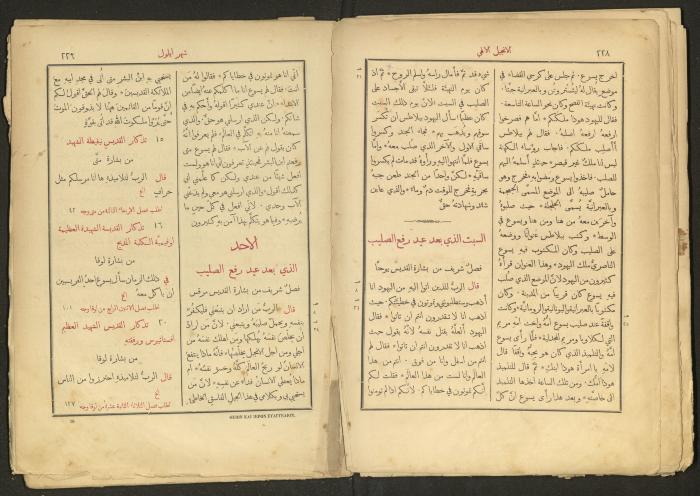 ٢٢٨
الانجيل الالهي
اخرج يسوع. ثم جلس على كرسي القضاء في
موضع يقال له ليثستروتس وبالعبرانية جبثا.
وكانت تهيئة الفصح وكان نحو الساعة السادسة.
فقال لليهود هوذا ملككم* اما هم فصرخوا
ارفعه ارفعه اصلبه. قال لهم بيلاطس
أأصلب ملككم. فاجاب رؤساء الكهنة
ليس لنا ملك غير قيصر* حينئذ أسلمه اليهم
ليصلب. فاخذوا يسوع ومضوا به* فخرج وهو
حامل صليبه الى الموضع المسمى الجمجمة
وبالعبرانية يُسمى الجلجلة* حيث صلبوهُ
وآخرَين معه من هنا ومن هنا ويسوع في
الوسط* وكتب بيلاطس عنوانًا ووضعه
على الصليب وكان المكتوب فيه يسوع
الناصري ملك اليهود* وهذا العنوان قرأهُ
كثيرون من اليهود لان الموضع الذي صُلب
فيه يسوع كان قريبًا من المدينة. وكان
مكتوبًا بالعبرانية واليونانية والرومانية* وكانت
واقفة عند صليب يسوع امهُ واخت امه مريم
التي لكلاوبا ومريم المجدلية* فلما رأى يسوع
امه والتلميذ الذي كان هو يحبه واقفًا قال
لامه يا امرأة هوذا ابنك* ثم قال للتلميذ
هوذا امك. ومن تلك الساعة اخذها التلميذ
الى خاصته* وبعد هذا رأى يسوع ان كل
شيء قد تم فأمال رأسه واسلم الروح* ثم اذ
كان يوم التهيئة فلئلا تبقى الأجساد على
الصليب في السبت لان يوم ذلك السبت
كان عظيمًا سأل اليهود بيلاطس ان تُكسر
سوقهم ويُذهب بهم* فجاء الجند وكسروا
ساقَي الاول والآخر الذي صُلب معه* واما
يسوع فلما انتهوا اليه ورأوه قد مات لم يكسروا
ساقيه* لكن واحدًا من الجند طعن جنبه
بحربة فخرج للوقت دم وماء* والذي عاين
شهد وشهادته حق
السبت الذي بعد عيد رفع الصليب
فصل شريف من بشارة القديس يوحنا
قال الرب للذين اتوا اليه من اليهود انا
اذهب وستطلبونني وتموتون في خطيئتكم* حيث
اذهب انا لا تقدرون انتم ان تأتوا* فقال
اليهود ألعلهُ يقتل نفسهُ لانه يقول حيث
اذهب انا لا تقدرون انتم ان تأتوا* فقال لهم
انتم من اسفل وانا من فوق. انتم من هذا
العالم وانا لست من هذا العالم* فقلت لكم
انكم تموتون في خطاياكم. لانكم إن لم تؤمنوا
شهر ايلول
٢٢٩
اني انا هو تموتون في خطاياكم* فقالوا له مَن
انت. فقال لهم يسوع انا ما اكلمكم به ايضًا من
الابتداء* وان عندي كثيرًا اقوله واحكم به في
شأنكم. ولكن الذي ارسلني هو حق. والذي
سمعته انا منه به اتكلم في العالم* فلم يعرفوا انه
كان يقول لهم عن الآب* فقال لهم يسوع اذا
رفعتم ابن البشر فحينئذ تعرفون اني انا هو ولست
افعل شيئًا من عندي ولكن كما علمني ابي
كذلك اقول* والذي ارسلني هو معي ولم يدعني
الآب وحدي. لاني افعل في كل حين ما
يُرضيه* وفيما هو يتكلم بهذا آمن به كثيرون
الاحد
الذي بعد عيد رفع الصليب
فصل شريف من بشارة القديس مرقس
قال الرب مَن اراد ان يتبعني فليكفر
بنفسه ويحمل صليبه ويتبعني. لان مَن اراد
ان يخلص نفسه يُهلكها ومَن اهلك نفسه من
اجلي ومن اجل الانجيل يخلصها* فانه ماذا ينتفع
الانسان لو ربح العالم كله وخسر نفسه* ام
ماذا يُعطي الانسان فداءً عن نفسه* لان من
يستحيي بي وبكلامي في هذا الجيل الفاسق الخاطئ.
يستحيي به ابن البشر متى أتى في مجد ابيه مع
الملائكة القديسين* وقال لهم الحقَّ اقول لكم
ان قومًا من القائمين هنا لا يذوقون الموت
حتى يروا ملكوت الله قد اتى بقوة
١٥ تذكار القديس نيقيطة الشهيد
من بشارة متى
قال الرب لتلاميذه ها انا مرسلكم مثل
خراف الخ
اطلب فصل الاربعاء الثالثة من متى وجه ٤٢
١٦ تذكار القديسة الشهيدة العظيمة
اوفيمية الكلية المديح
من بشارة لوقا
في ذلك الزمان سأل يسوع احد الفريسيين
ان يأكل معه الخ
اطلب فصل الاثنين الرابع من لوقا وجه ١٠٨
٢٠ تذكار القديس الشهيد العظيم
افستاثيوس ورفقته
من بشارة لوقا
قال الرب لتلاميذه احترزوا من الناس
الخ
اطلب فصل الثلاثاء الثانية عشرة من لوقا وجه ١٢٧
ΘΕΙΟΝ ΚΑΙ ΙΕΡΟΝ ΕΥΑΓΓΕΛΙΟΝ.